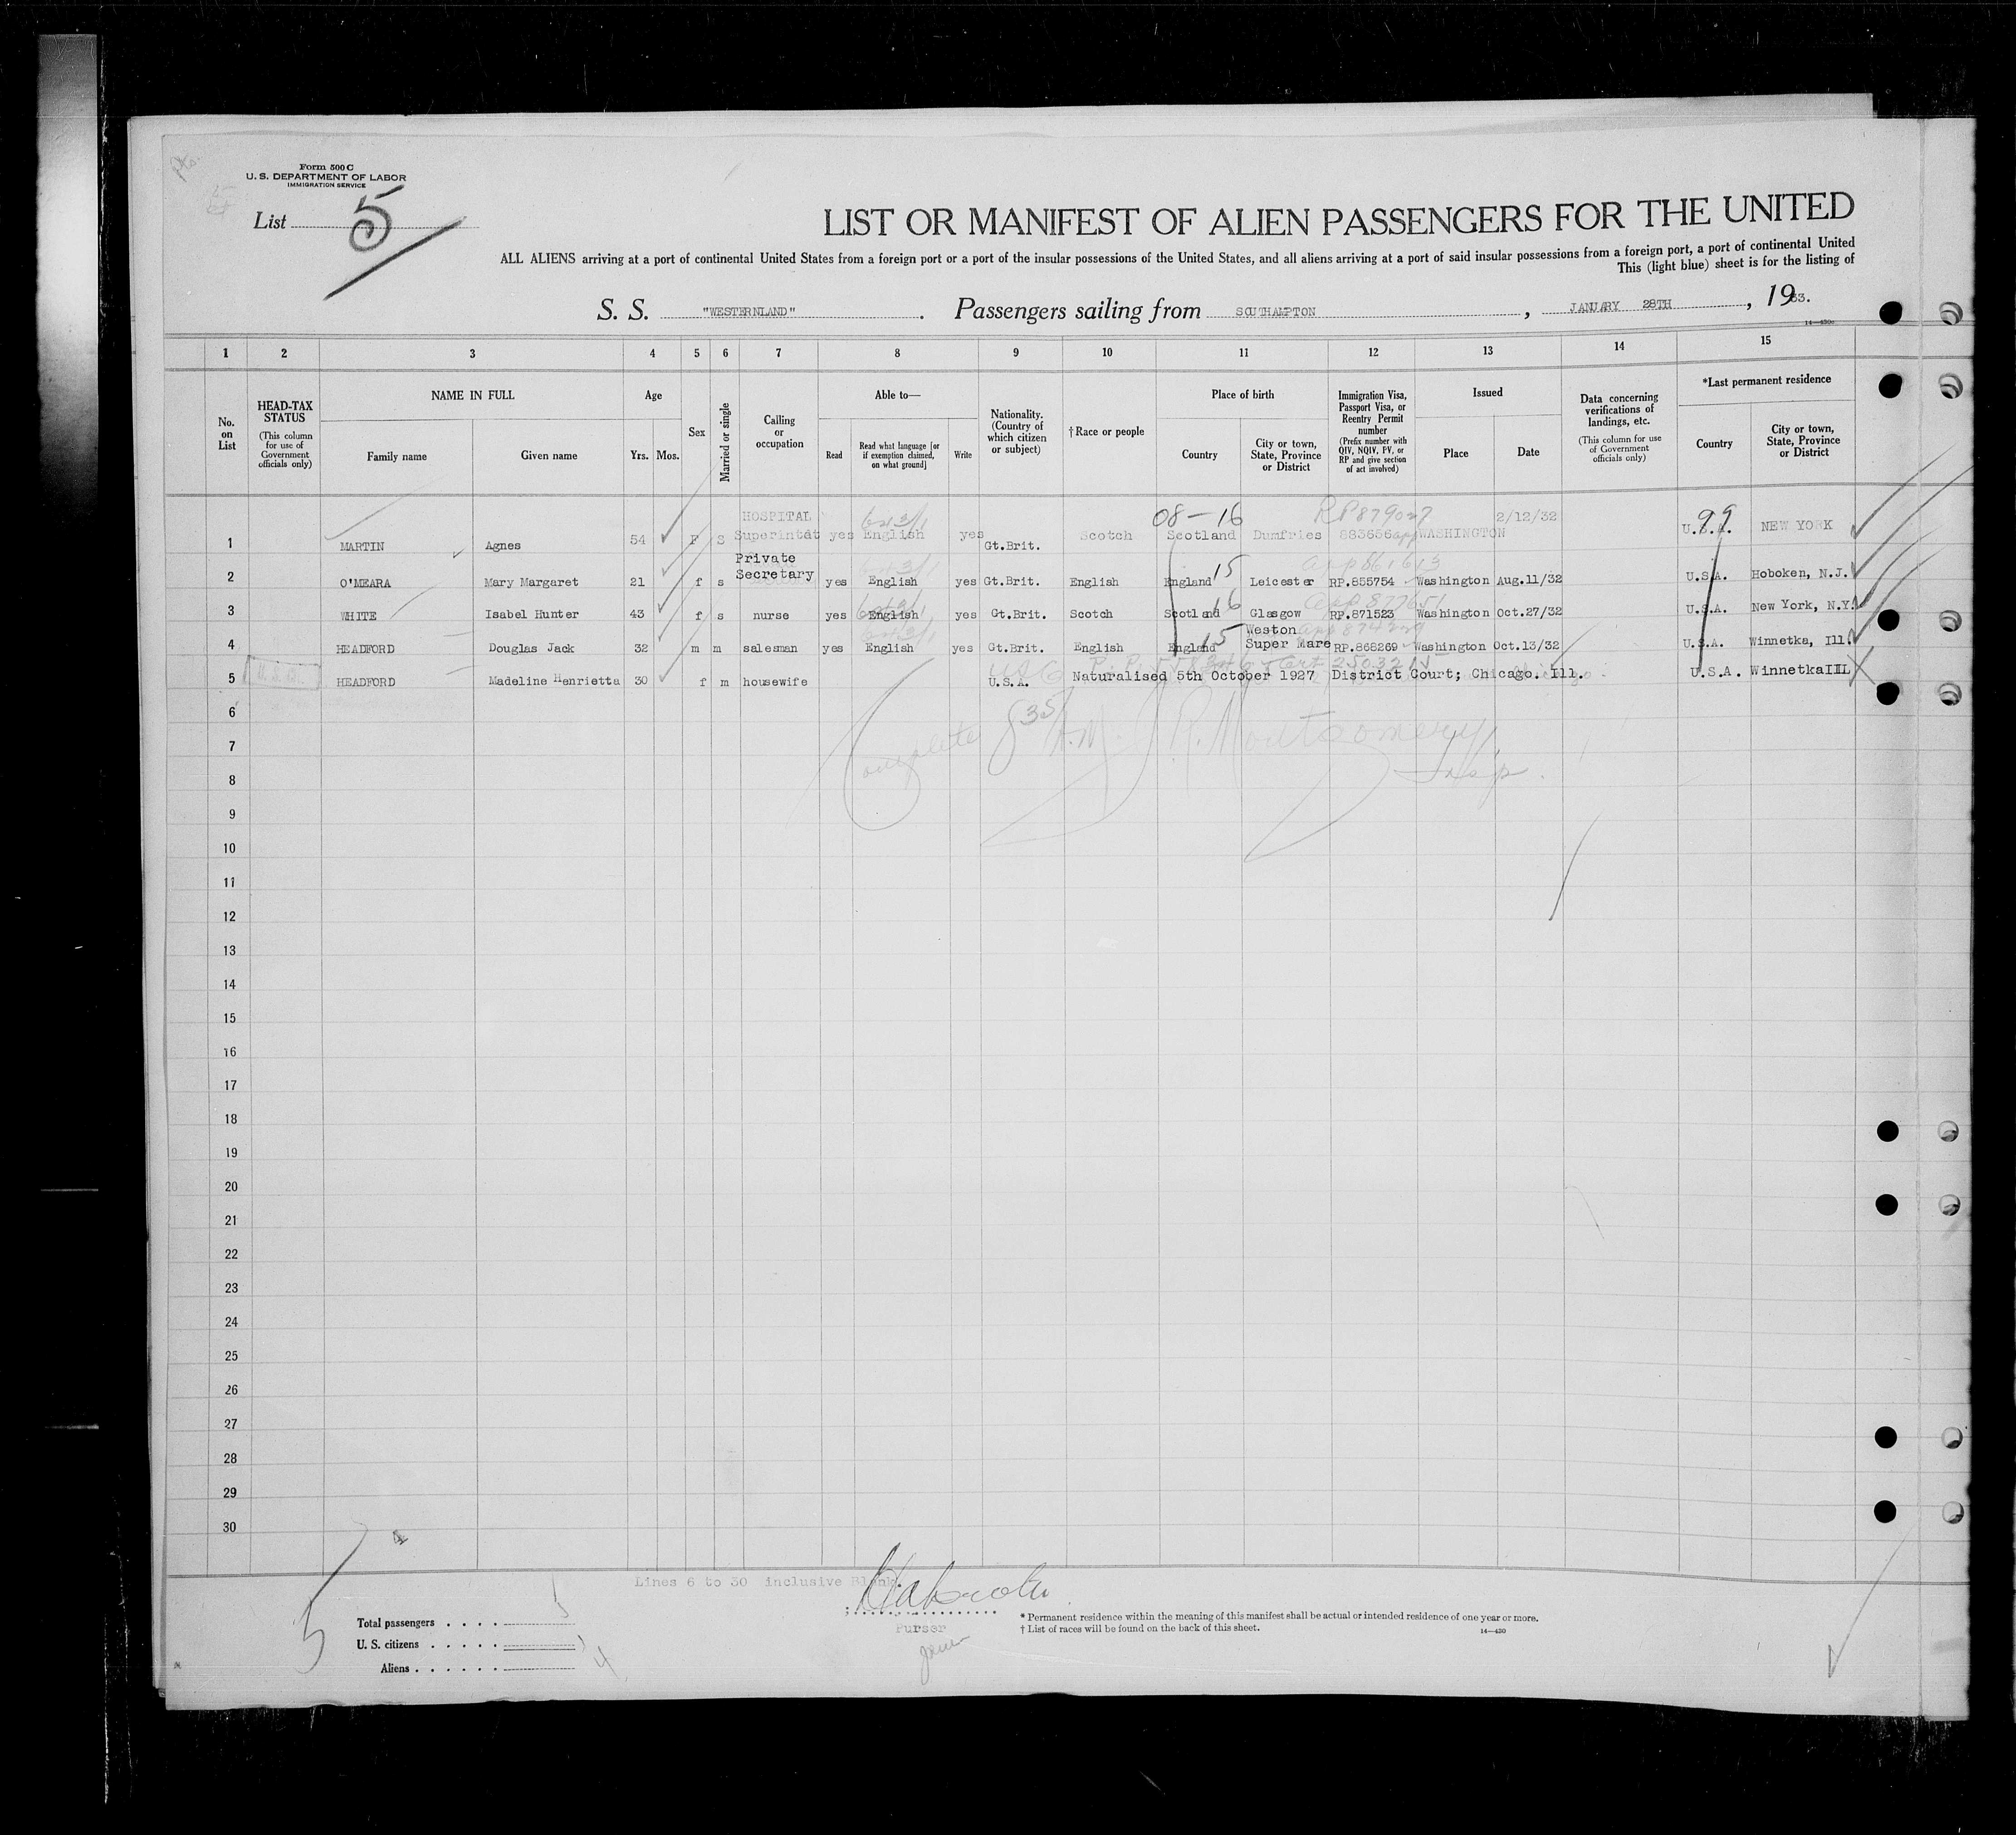 Form 500 C
U. S. DEPARTMENT OF LABOR
IMMIGRATION SERVICE
List 5
LIST OR MANIFEST OF ALIEN PASSENGERS FOR THE UNITED
ALL ALIENS arriving at a port of continental United States from a foreign port or a port of the insular possessions of the United States, and all aliens arriving at a port of said insular possessions from a foreign port, a port of continental United
This (light blue) sheet is for the listing of
S. S. "WESTERNLAND". Passengers sailing from SOUTHAMPTON, JANUARY 28TH, 1933.
14—430c
1 2 3 4 5 6 7 8 9 10 11 12 13 14 15
No. on List
HEAD-TAX STATUS
(This column for use of Government officials only)
NAME IN FULL
Family name Given name
Age
Yrs. Mos.
Sex
Married or single
Calling or occupation
Able to—
Read Read what language [or if exemption claimed, on what ground] Write
Nationality. (Country of which citizen or subject)
†Race or people
Place of birth
Country City or town, State, Province or District
Immigration Visa, Passport Visa, or Reentry Permit number
(Prefix number with QIV, NQIV, PV, or RP and give section of act involved)
Issued
Place Date
Data concerning verifications of landings, etc.
(This column for use of Government officials only)
*Last permanent residence
Country City or town, State, Province or District
HOSPITAL 08—16 RP879027 2/12/32 99
1 MARTIN Agnes 54 F S Superintdt yes English yes Gt.Brit. Scotch Scotland Dumfries 883656 app WASHINGTON U.S.A. NEW YORK
Private 15 app 861613
2 O'MEARA Mary Margaret 21 f s Secretary yes English yes Gt.Brit. English England Leicester RP.855754 Washington Aug.11/32 U.S.A. Hoboken, N.J.
16 app 877651
3 WHITE Isabel Hunter 43 f s nurse yes English yes Gt.Brit. Scotch Scotland Glasgow RP.871523 Washington Oct.27/32 U.S.A. New York, N.Y.
15 Weston
4 HEADFORD Douglas Jack 32 m m salesman yes English yes Gt.Brit. English England Super Mare RP.868269 Washington Oct.13/32 U.S.A. Winnetka, Ill.
5 HEADFORD Madeline Henrietta 30 f m housewife U.S.A. Naturalised 5th October 1927 District Court; Chicago. Ill. U.S.A. WinnetkaIll
6
7
8
Complete 835 A.M. J R. Montgomery
Insp.
9
10
11
12
13
14
15
16
17
18
19
20
21
22
23
24
25
26
27
28
29
30
Lines 6 to 30 inclusive Blank.
5
Total passengers
U. S. citizens
Aliens 4
Purser
* Permanent residence within the meaning of this manifest shall be actual or intended residence of one year or more.
† List of races will be found on the back of this sheet.
14—430